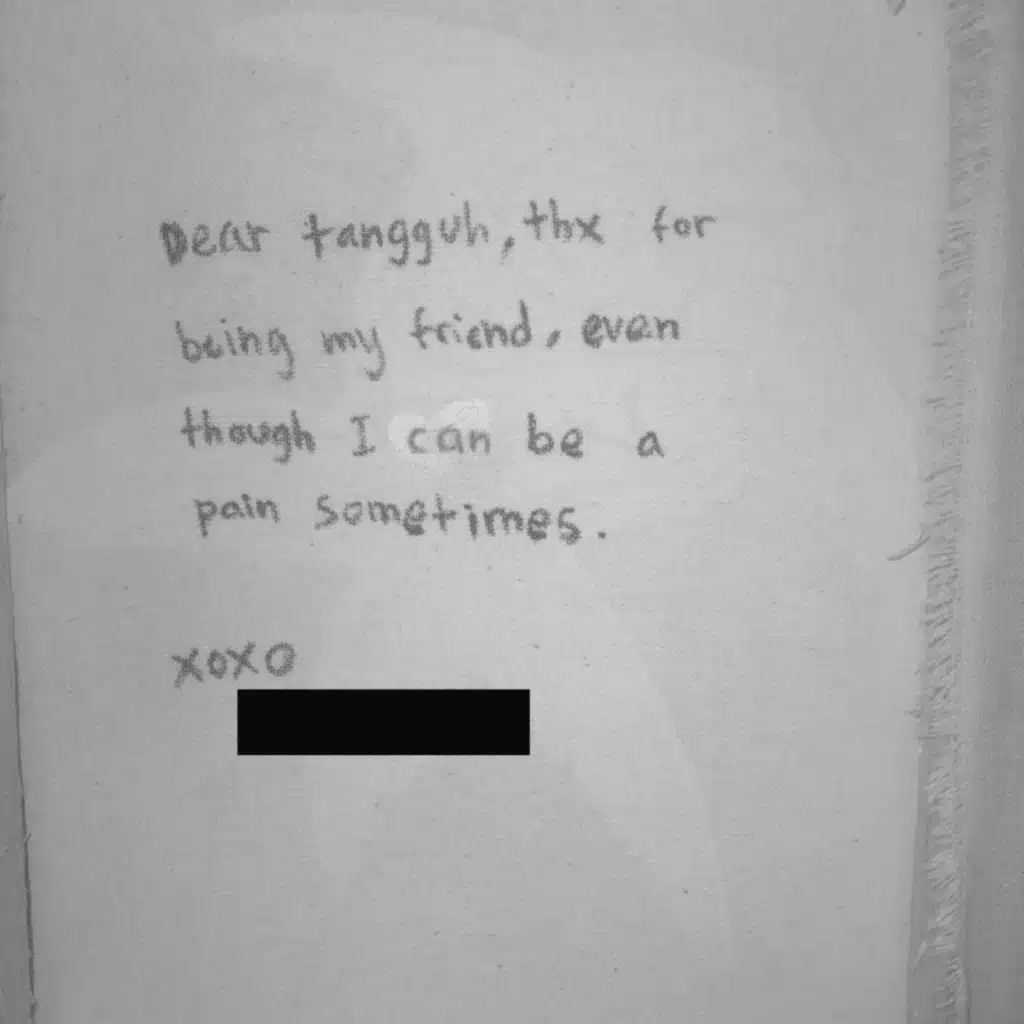 Dear tangguh, thx for
being my friend, even
though I can be a
pain sometimes.
xoxo